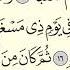 فِى يَوْمٍ ذِى
١٦ ثُمَّ كَانَ مِنَ